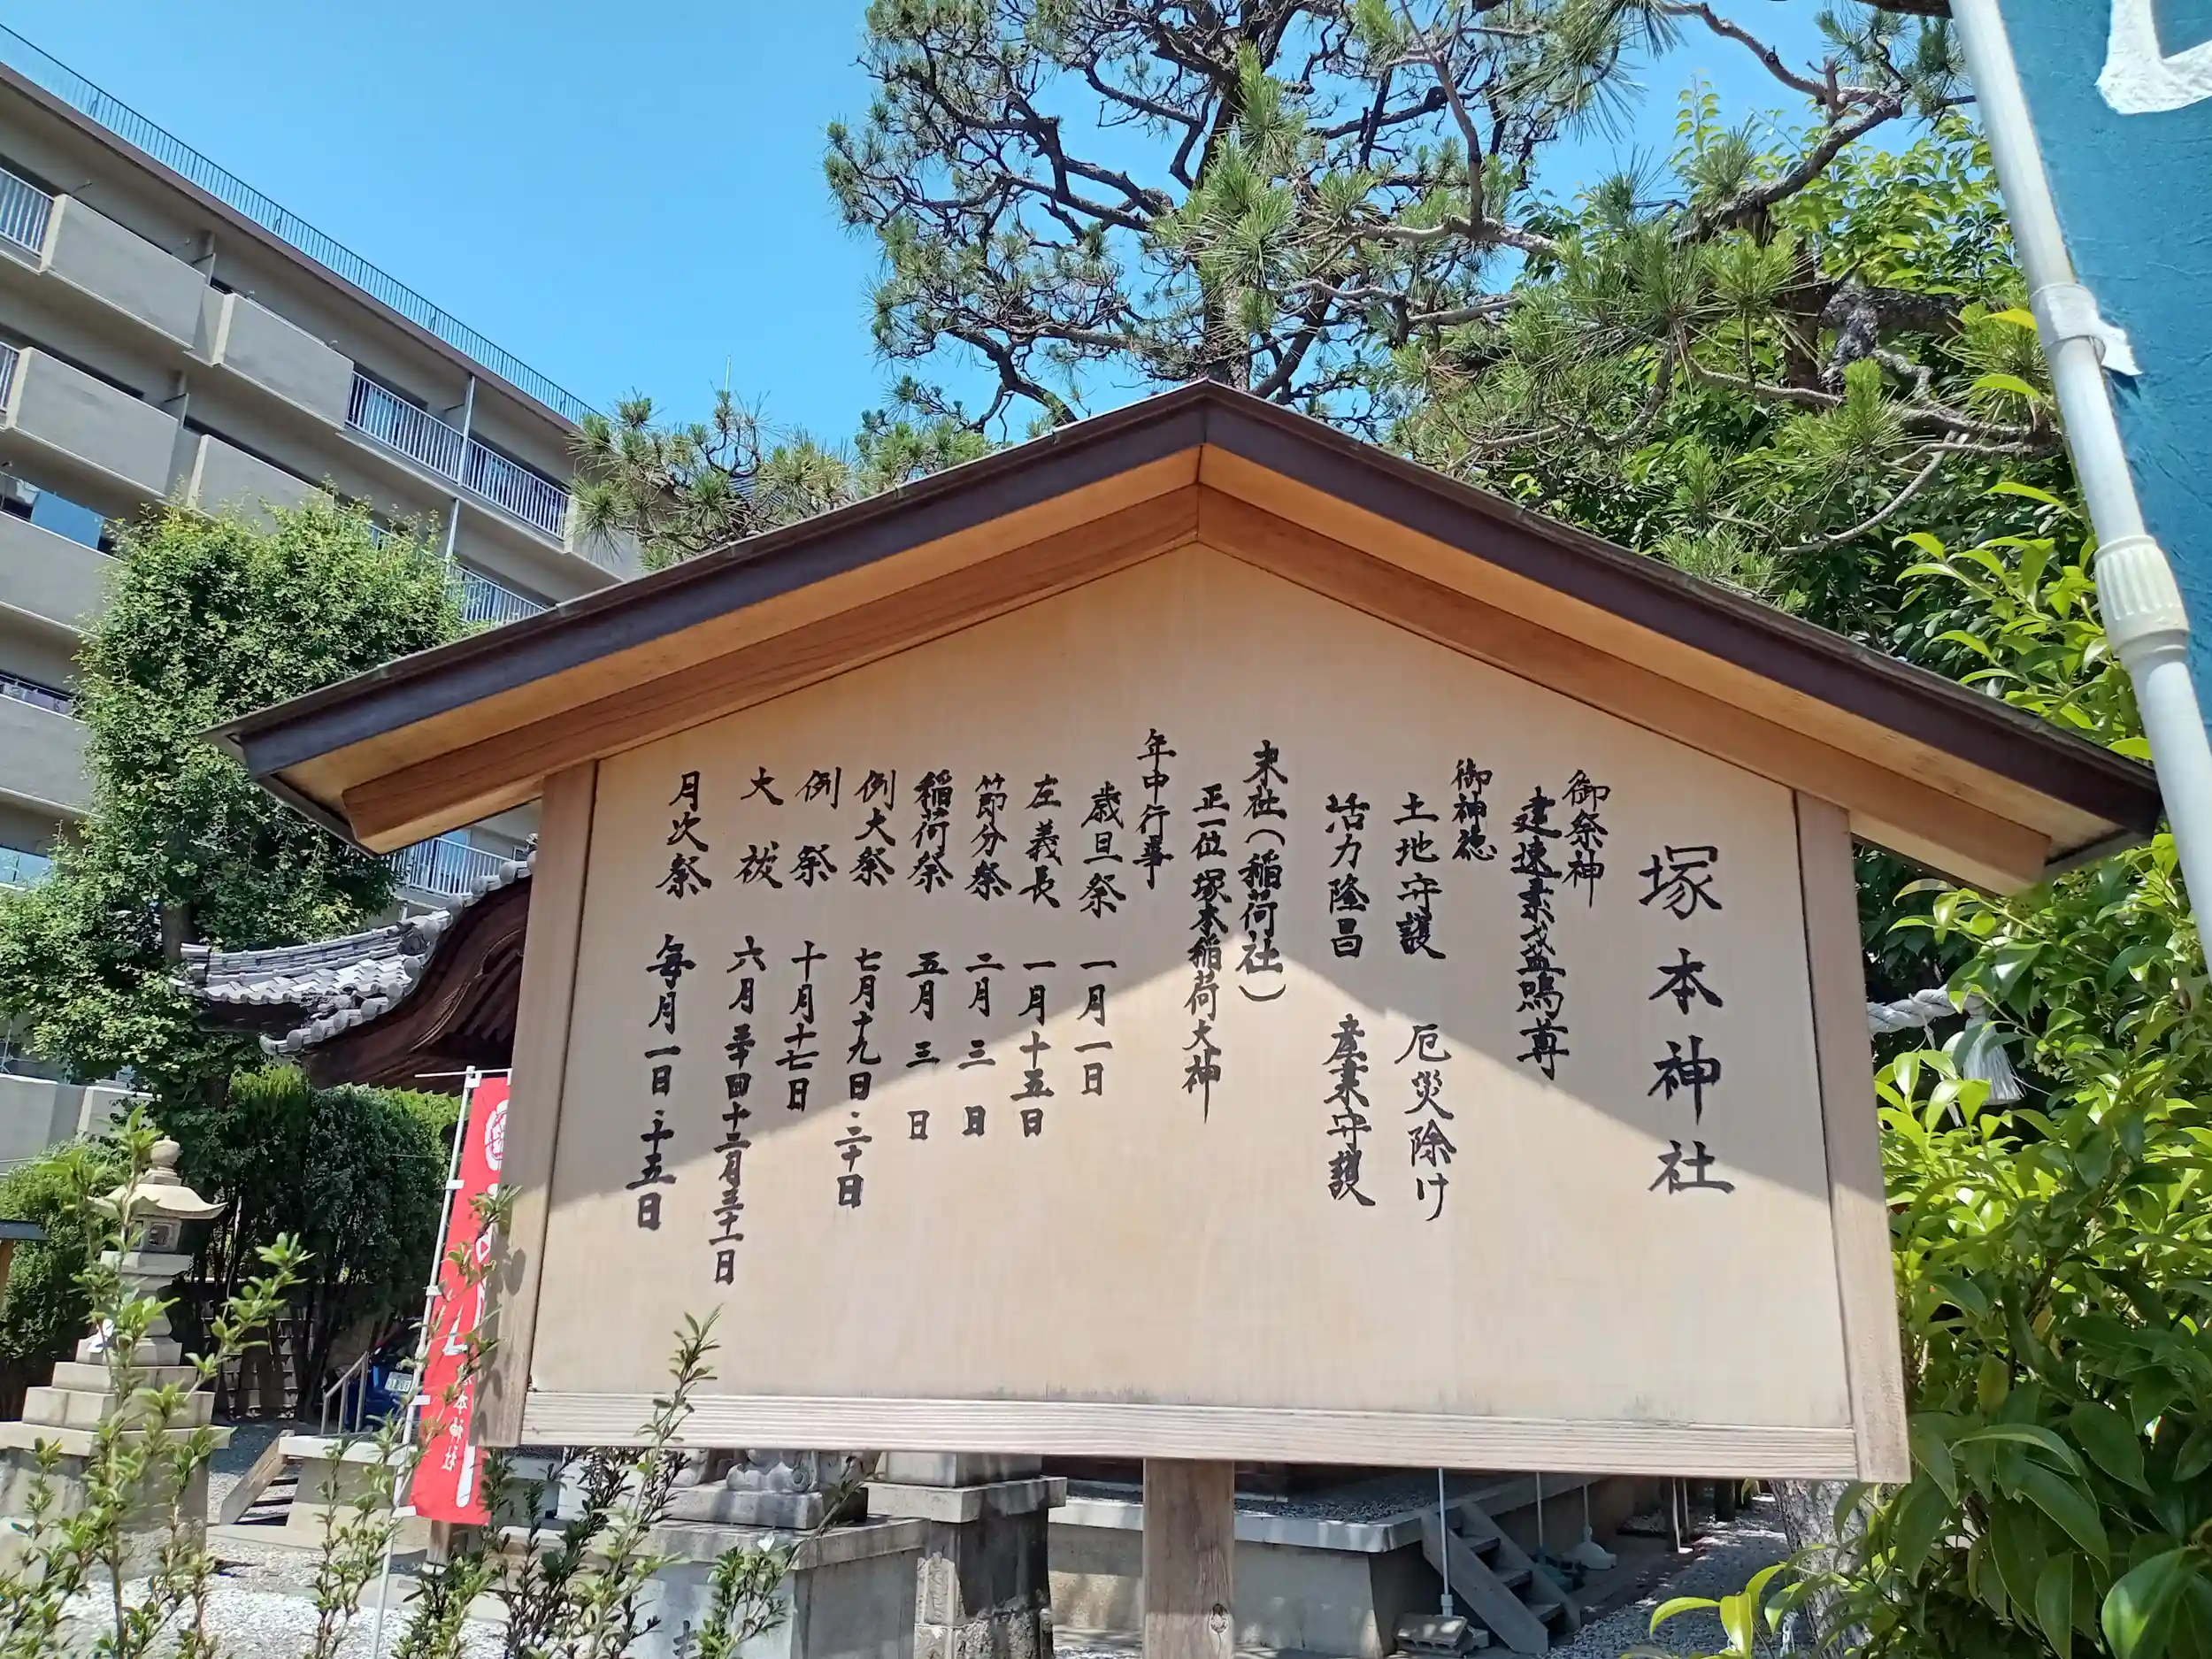 塚本神社
御祭神
建速素戔嗚尊
御神徳
土地守護 厄災除け
活力隆昌 産業守護
末社（稲荷社）
正一位塚本稲荷大神
年中行事
歳旦祭 一月一日
左義長 一月十五日
節分祭 二月三日
稲荷祭 五月三日
例大祭 七月十九日・二十日
例祭 十月十七日
大祓 六月三十日十二月三十一日
月次祭 毎月一日・十五日
本神社